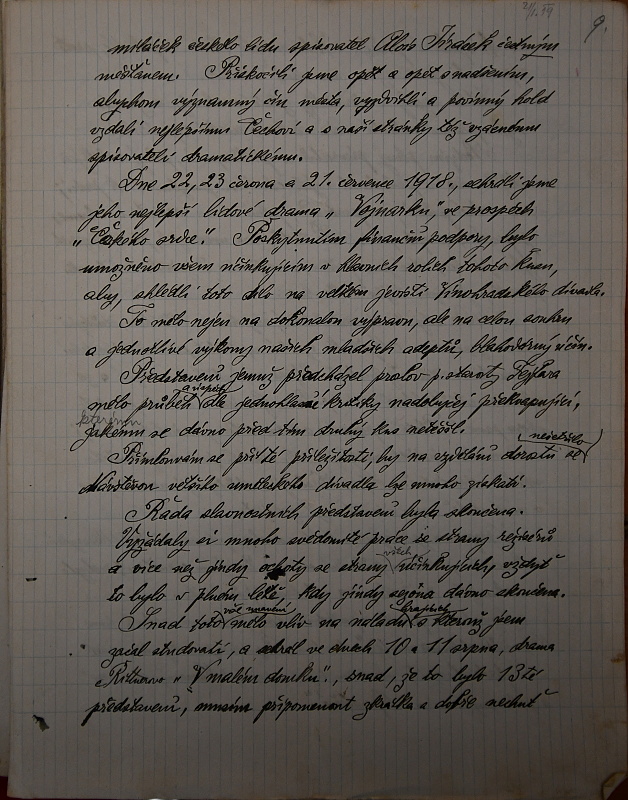 9.
miláček českého lidu spisovatel Alois Jirásek čestným
měšťanem. Přiskočili jsme opět a opět s nadšením,
abychom významný čin města, vyzdvihli a povinný hold
vzdali nejlepšímu Čechovi a s naší stránky též vzácnému
spisovateli dramatickému.
Dne 22, 23 června a 21. července 1918., sehráli jsme
jeho nejlepší lidové drama „Vojnarku", ve prospěch
„Českého srdce". Poskytnutím finanční podpory, bylo
umožněno všem účinkujícím v hlavních rolích tohoto kusu,
aby, shlédli toto dílo na velkém jevišti Vinohradského divadla.
To mělo nejen na dokonalou výpravu, ale na celou souhru
a jednotlivé výkony našich mladších adeptů, blahodárný účin.
Představení jemuž předcházel proslov p. starosty
mělo průběh dle jednohlasné kritiky nadobyčej překvapující,
kterému
jakému se dávno před tím druhý kus netěšil.
neješitelo
Přimlouvám se příště příležitosti, by na vzdělání dorostu se
návštěvou většího uměleckého divadla lze mnoho získati.
Řada slavnostních představení byla skončena.
Vyžádaly si mnoho svědomité práce se strany režisérů
všech
a více než jindy ochoty se strany účinkujících, vždyť
to bylo v plném létě, kdy jindy sejóna dávno skončena.
Snad toto mělo vliv na náladu s kterou jsem
hrajících
začal studovati, a sehrál ve dnech 10 a 11 srpna, drama
„V malém domku", snad, že to bylo 13té
představení, musím připomenout zkrátka a dobře nechuť